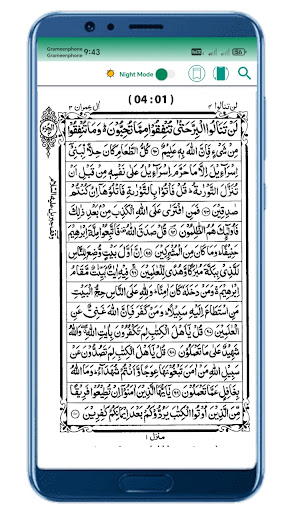 Grameenphone
Grameenphone 9:43
Night Mode
لن تنالوا ٤
(04:01)
اٰل عمرٰن ٣
لَنْ تَنَالُوا الْبِرَّ حَتّٰى تُنْفِقُوْا مِمَّا تُحِبُّوْنَ ؕ وَمَا تُنْفِقُوْا
مِنْ شَیْءٍ فَاِنَّ اللّٰهَ بِهٖ عَلِیْمٌ ﴿۹۲﴾ كُلُّ الطَّعَامِ كَانَ حِلًّا لِّبَنِیْۤ
اِسْرَآءِیْلَ اِلَّا مَا حَرَّمَ اِسْرَآءِیْلُ عَلٰى نَفْسِهٖ مِنْ قَبْلِ اَنْ
تُنَزَّلَ التَّوْرٰىةُ ؕ قُلْ فَاْتُوْا بِالتَّوْرٰىةِ فَاتْلُوْهَاۤ اِنْ كُنْتُمْ
صٰدِقِیْنَ ﴿۹۳﴾ فَمَنِ افْتَرٰى عَلَى اللّٰهِ الْكَذِبَ مِنْۢ بَعْدِ ذٰلِكَ
فَاُولٰٓئِكَ هُمُ الظّٰلِمُوْنَ ﴿۹۴﴾ قُلْ صَدَقَ اللّٰهُ فَاتَّبِعُوْا مِلَّةَ اِبْرٰهِیْمَ
حَنِیْفًا ؕ وَمَا كَانَ مِنَ الْمُشْرِكِیْنَ ﴿۹۵﴾ اِنَّ اَوَّلَ بَیْتٍ وُّضِعَ لِلنَّاسِ
لَلَّذِیْ بِبَكَّةَ مُبٰرَكًا وَّهُدًى لِّلْعٰلَمِیْنَ ﴿۹۶﴾ فِیْهِ اٰیٰتٌۢ بَیِّنٰتٌ مَّقَامُ
اِبْرٰهِیْمَ ۚ وَمَنْ دَخَلَهٗ كَانَ اٰمِنًا ؕ وَلِلّٰهِ عَلَى النَّاسِ حِجُّ الْبَیْتِ
مَنِ اسْتَطَاعَ اِلَیْهِ سَبِیْلًا ؕ وَمَنْ كَفَرَ فَاِنَّ اللّٰهَ غَنِیٌّ عَنِ
الْعٰلَمِیْنَ ﴿۹۷﴾ قُلْ یٰۤاَهْلَ الْكِتٰبِ لِمَ تَكْفُرُوْنَ بِاٰیٰتِ اللّٰهِ ۖ وَاللّٰهُ
شَهِیْدٌ عَلٰى مَا تَعْمَلُوْنَ ﴿۹۸﴾ قُلْ یٰۤاَهْلَ الْكِتٰبِ لِمَ تَصُدُّوْنَ عَنْ
سَبِیْلِ اللّٰهِ مَنْ اٰمَنَ تَبْغُوْنَهَا عِوَجًا وَّاَنْتُمْ شُهَدَآءُ ؕ وَمَا اللّٰهُ
بِغَافِلٍ عَمَّا تَعْمَلُوْنَ ﴿۹۹﴾ یٰۤاَیُّهَا الَّذِیْنَ اٰمَنُوْۤا اِنْ تُطِیْعُوْا فَرِیْقًا
مِّنَ الَّذِیْنَ اُوْتُوا الْكِتٰبَ یَرُدُّوْكُمْ بَعْدَ اِیْمَانِكُمْ كٰفِرِیْنَ ﴿۱۰۰﴾
منزل ١